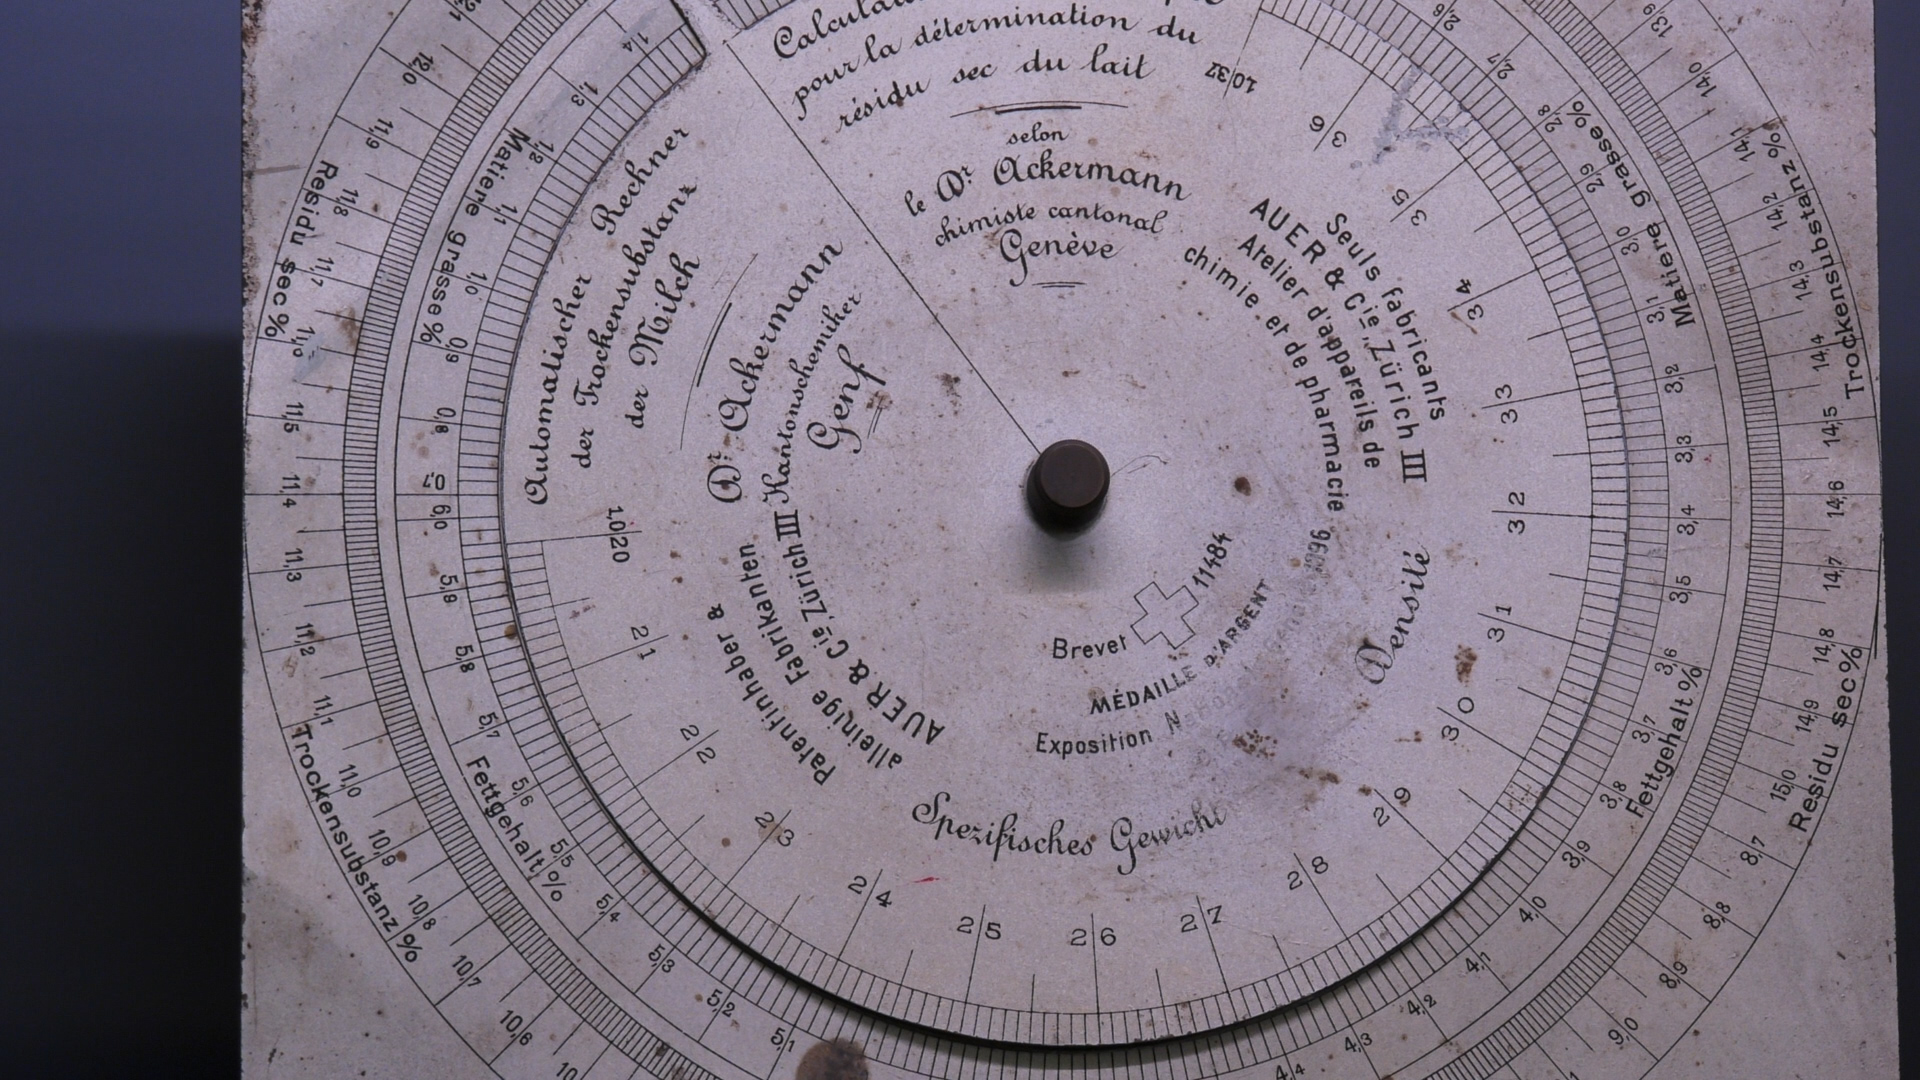 pour la détermination du
résidu sec du lait
selon
le Dr Ackermann
chimiste cantonal
Genève
Automatischer Rechner
der Trockensubstanz
der Milch
Dr. Ackermann
Kantonschemiker
Genf
Patentinhaber &
alleinige Fabrikanten
AUER & Cie, Zürich III
Seuls fabricants
AUER & Cie, Zürich III
Atelier d'appareils de
chimie et de pharmacie
Brevet 11484
MÉDAILLE D'ARGENT
Exposition
Densité
Spezifisches Gewicht
1,020
21
22
23
24
25
26
27
28
29
30
31
32
33
34
35
36
1,037
Matière grasse %
Matière grasse %
Fettgehalt %
Fettgehalt %
1,4
1,3
1,2
1,1
1,0
0,9
0,8
0,7
6,0
5,9
5,8
5,7
5,6
5,5
5,4
5,3
5,2
5,1
4,4
4,3
4,2
4,1
4,0
3,9
3,8
3,7
3,6
3,5
3,4
3,3
3,2
3,1
3,0
2,9
2,8
2,7
2,6
Résidu sec %
Trockensubstanz %
Trockensubstanz %
Résidu sec %
12,1
12,0
11,9
11,8
11,7
11,6
11,5
11,4
11,3
11,2
11,1
11,0
10,9
10,8
10,7
10,6
13,9
14,0
14,1
14,2
14,3
14,4
14,5
14,6
14,7
14,8
14,9
15,0
8,7
8,8
8,9
9,0